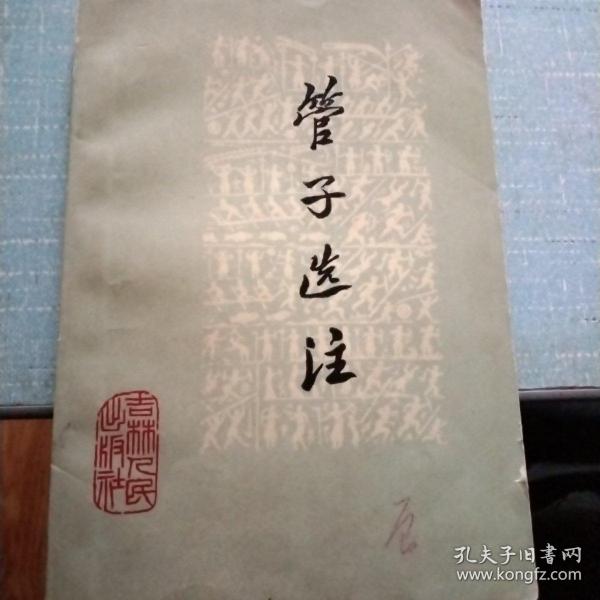 管子选注
吉林人民
出版社
孔夫子旧书网
www.kongfz.com